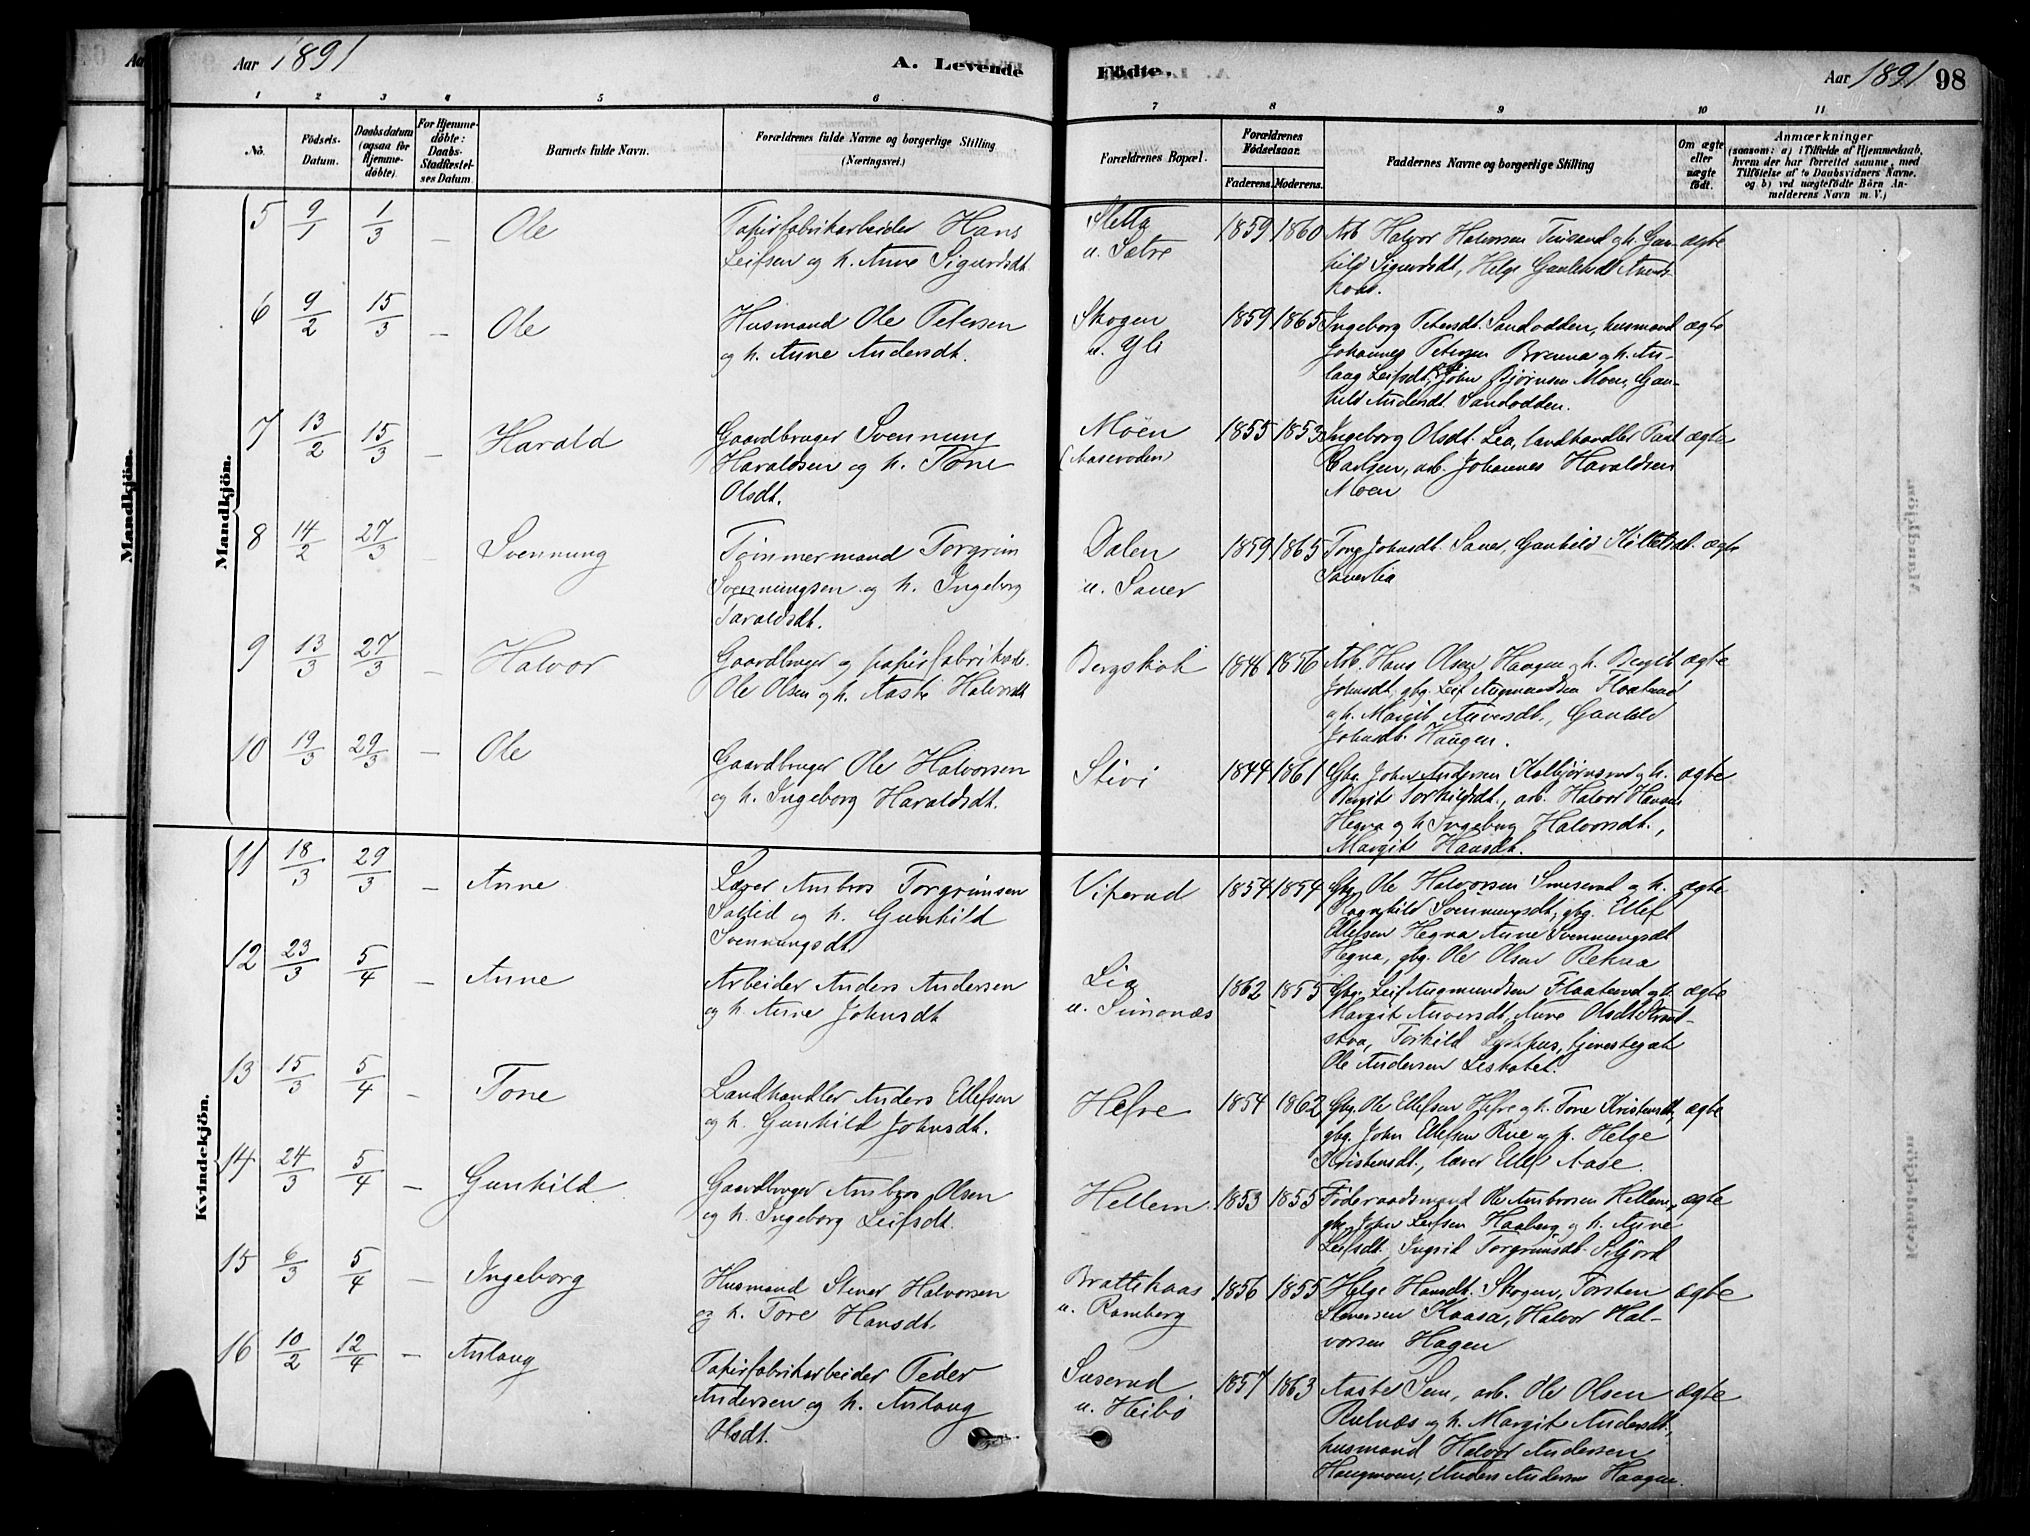 Aar 1891
A. Levende
Födte.
Aar 1891 98
1 2 3 4 5 6 7 8 9 10 11
No.
Födsels-
Datum.
Daabsdatum
(ogsaa for
Hjemme-
døbte).
For Hjemme-
døbte:
Daabs-
Stadfæstel-
ses Datum.
Barnets fulde Navn.
Forældrenes fulde Navne og borgerlige Stilling
(Næringsvei.)
Forældrenes Bopæl.
Forældrenes
Födselsaar.
Faderens. Moderens.
Faddernes Navne og borgerlige Stilling
Om ægte
eller
uægte
født.
Anmærkninger
(saasom: a) i Tilfælde af Hjemmedaab,
hvem der har forrettet samme, med
Tilføielse af to Daabsvidners Navne,
og b) ved uægtefødte Börn An-
melderens Navn m. V.)
Mandkjön.
5 9/1 1/3 – Ole
Papirfabrikarbeider Hans
Leifsen og h. Anne Sigurdsdt
Sletta
u. Sætre
1859 1860
Arb Halvor Halvorsen Tinland og h. Gun-
hild Sigurdsdt, Helge Gunleiksd
ægte
6 9/2 15/3 – Ole
Husmand Ole Petersen
og h. Anne Andersdt.
Skogen
u. Yli
1859 1865
Ingeborg Petersdt. Sandodden, husmand
Johannes Petersen Brenna og h. An-
laug Leifsdt, John Bjørnsen Moen, Gun-
hild Andersdt. Sandodden.
ægte
7 13/2 15/3 – Harald
Gaardbruger Svennung
Haraldsen og h. Tone
Olsdt.
Moen
1855 1853
Ingeborg Olsdt. Lia, landhandler
Carlsen, arb. Johannes Haraldsen
Moen
ægte
8 14/2 27/3 – Svennung
Tømmermand Torgrim
Svennungsen og h. Ingeborg
Taraldsdt.
Dalen
u. Sauer
1859 1865
Tone Johnsdt. Sauer, Gunhild
Sauerlia
ægte
9 13/3 27/3 – Halvor
Gaardbruger og papirfabrikarb.
Ole Olsen og h. Aaste Halvorsdt
Bergskaas
1846 1856
Arb. Hans Olsen Haugen og h. Bergit
Johnsdt. gbg. Leif Augmundsen Flaatend
og h. Margit Anversdt., Gunhild
Johnsdt. Haugen.
ægte
10 19/3 29/3 – Ole
Gaardbruger Ole Halvorsen
og h. Ingeborg Haraldsdt.
Stivi
1844 1861
Gbg. John Andersen Kolbjørnsrud og h.
Bergit Torkildsdt., arb. Halvor Hansen
Hegna og h. Ingeborg Halvorsdt.,
Margit Hansdt.
ægte
Kvindekjön.
11 18/3 29/3 – Anne
Lærer Ambros Torgrimsen
og h. Gunhild
Svennungsdt.
Viperud
1854 1854
Gbg Ole Halvorsen Smeserud og h.
Ragnhild Svennungsdt, gbg. Ellef
Ellefsen Hegna Anne Svennungsdt
Hegna, gbg. Ole Olsen Rekaa
ægte
12 23/3 5/4 – Anne
Arbeider Anders Andersen
og h. Anne Johnsdt
Lia
u. Simonæs
1862 1855
Gbg. Leif Augmundsen Flaatend og h.
Margit Anversdt, Anne Olsdt
Torkild
Ole Andersen
ægte
13 15/3 5/4 – Tone
Landhandler Anders Ellefsen
og h. Gunhild Johnsdt.
Hefre
1854 1862
Gbg. Ole Ellefsen Hefre og h. Tone Kristensdt,
gbg. John Ellefsen Rue og p. Helge
Kristensdt., lærer Ellef Aase.
ægte
14 24/3 5/4 – Gunhild
Gaardbruger Ambros Olsen
og h. Ingeborg Leifsdt.
Hellem
1853 1855
Føderaadsmand Ole Ambrosen Hellem,
gbg. John Leifsen Haaberg og h. Anne
Leifsdt. Ingrid Torgrimsdt.
ægte
15 6/3 5/4 – Ingeborg
Husmand Stener Halvorsen
og h. Tore Hansdt.
Brattekaas
u. Ramberg
1856 1855
Helge Hansdt. Skogen, Torsten
Stenersen Kaasa, Halvor Hal-
vorsen Hagen
ægte
16 10/2 12/4 – Anlaug
Papirfabrikarbeider Peder
Andersen og h. Anlaug
Olsdt.
Suserud
u. Heibø
1857 1863
Aaste Sem, arb. Ole Olsen
og h. Margit Andersdt,
husmand Halvor Andersen
Haugmoen, Anders Andersen Haagen.
ægte